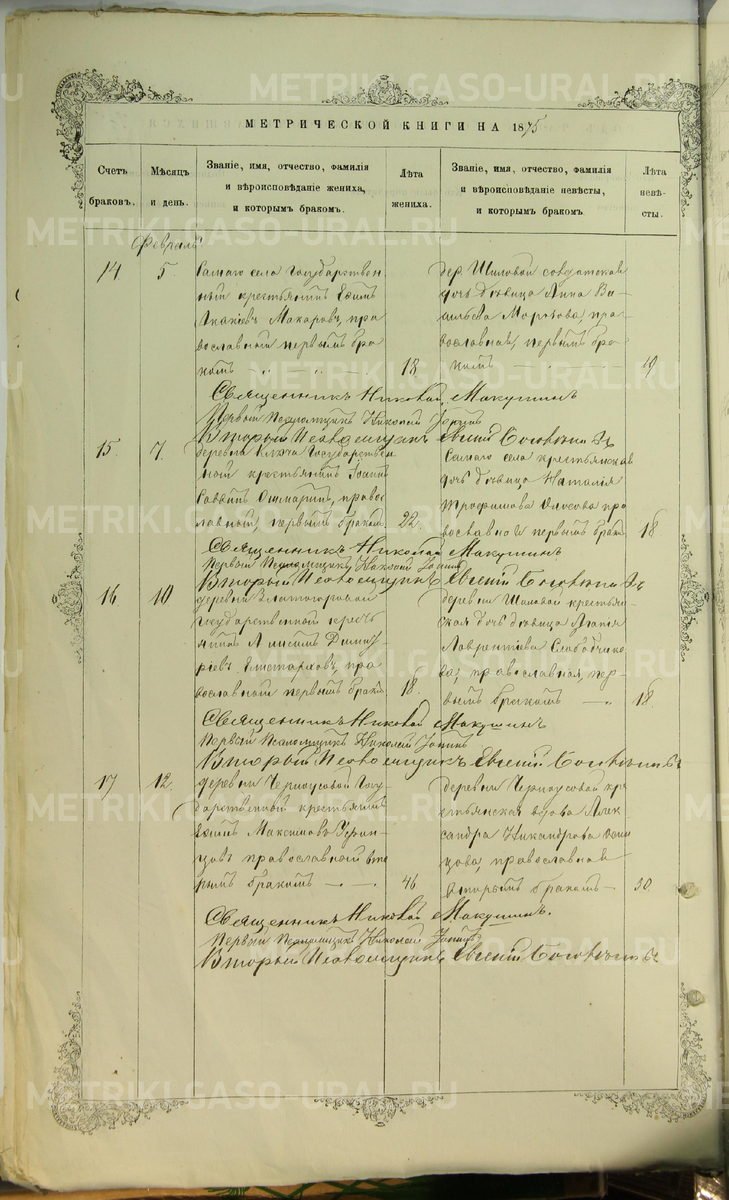 МЕТРИЧЕСКОЙ КНИГИ НА 1875
Счетъ браковъ.
Мѣсяцъ и день.
Званіе, имя, отчество, фамилія
и вѣроисповѣданіе жениха,
и которымъ бракомъ.
Лѣта жениха.
Званіе, имя, отчество, фамилія
и вѣроисповѣданіе невѣсты,
и которымъ бракомъ
Лѣта невѣ-
сты.
Февраль
14.
5.
Самаго села государствен
ный крестьянинъ Ефимъ
Макаровъ, пра
вославный первымъ бра
комъ
18
дер Шиловой солдатская
дочь дѣвица Анна Ва-
сильева, пра-
вославная, первымъ бра
комъ
19
Священникъ Николай Макушинъ
Первый Псаломщикъ Николай
Второй Псаломщикъ Евгений
15.
7.
деревни Ключа государствен
ный крестьянинъ Іоаннъ
Савинъ Ошмаринъ, правос
лавный, первымъ бракомъ
22.
Самаго села крестьянская
дочь дѣвица Наталія
Трофимова пра
вославная первымъ бракомъ
18
Священникъ Николай Макушинъ
Первый Псаломщикъ Николай
Второй Псаломщикъ Евгений
16
10
деревни
государственной кресть
янинъ Димит
ріевъ, пра
вославный первымъ бракомъ
18.
деревни Шиловой крестьян
ская дочь дѣвица
Лаврентіева Слободчико
ва, православная, пер-
вымъ бракомъ
18
Священникъ Николай Макушинъ
Первый Псаломщикъ Николай
Второй Псаломщикъ Евгений
17
12.
деревни Черноусовой госу-
дарственной крестьянинъ
Ефимъ Максимовъ
православной вто
рымъ бракомъ
46
деревни Черноусовой кре
стьянская вдова Алек
сандра Никандрова
православная
вторымъ бракомъ
30
Священникъ Николай Макушинъ.
Первый Псаломщикъ Николай
Второй Псаломщикъ Евгений
METRIKI.GASO-URAL.RU